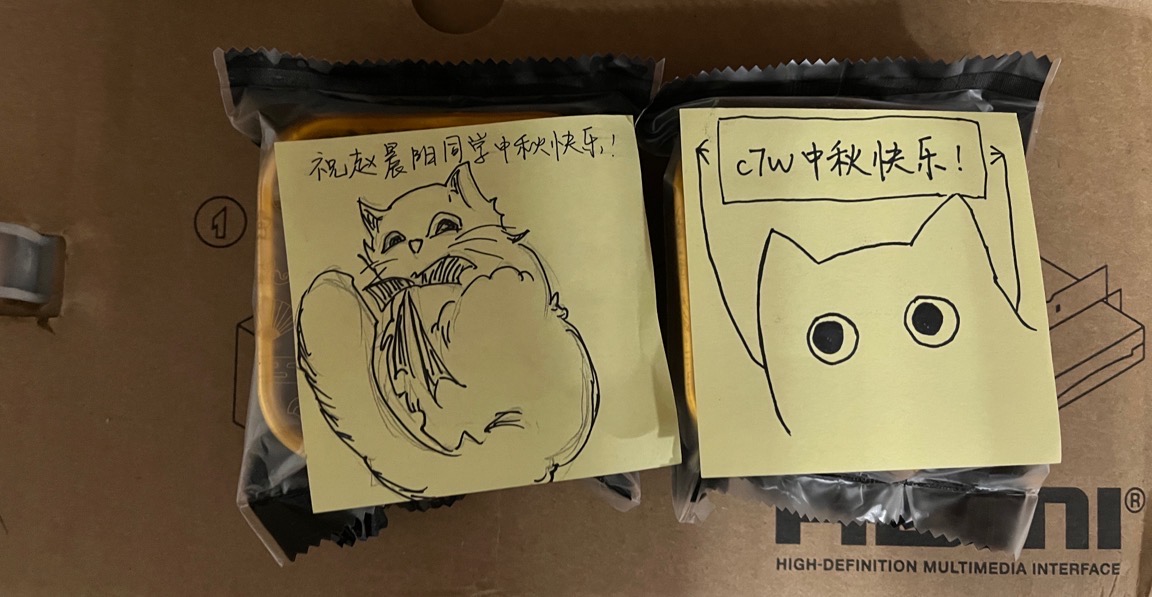 祝赵晨阳同学中秋快乐!
c7w中秋快乐!
1
HDMI®
HIGH-DEFINITION MULTIMEDIA INTERFACE